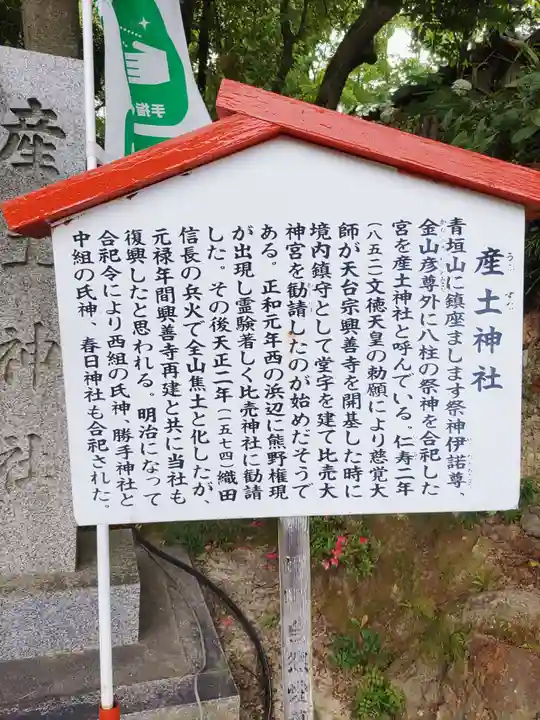 産土神社
うぶ すな
青垣山に鎮座まします祭神伊諾尊、
金山彦尊外に八柱の祭神を合祀した
宮を産土神社と呼んでいる。仁寿二年
(八五二)文徳天皇の勅願により慈覚大
師が天台宗興善寺を開基した時に
境内鎮守として堂宇を建て比売大
神宮を勧請したのが始めだそうで
ある。正和元年西の浜辺に熊野権現
が出現し霊験著しく比売神社に勧請
した。その後天正二年(一五七四)織田
信長の兵火で全山焦土と化したが、
元禄年間興善寺再建と共に当社も
復興したと思われる。明治になって
合祀令により西組の氏神、勝手神社と
中組の氏神、春日神社も合祀された。
産土神社
手指